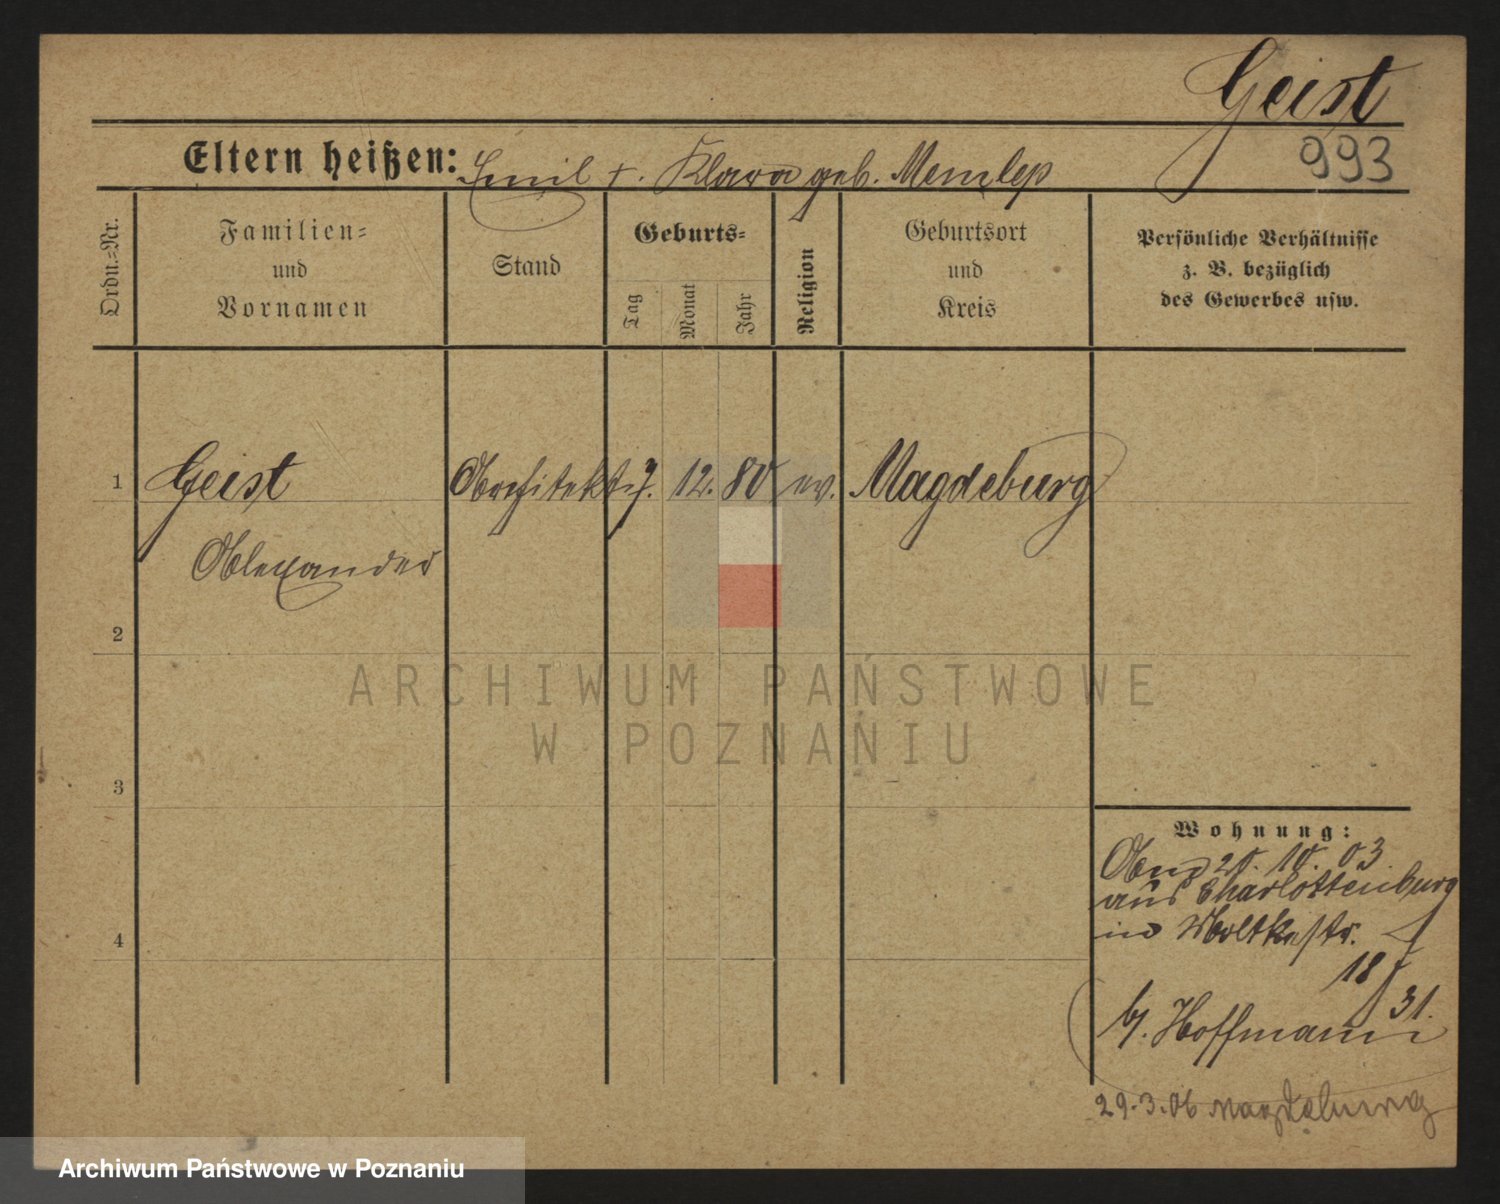 Geist
993
Eltern heißen: Emil †. Klara geb.
Ordn.-Nr.
Familien-
und
Vornamen
Stand
Geburts-
Tag
Monat
Jahr
Religion
Geburtsort
und
Kreis
Persönliche Verhältnisse
z. B. bezüglich
des Gewerbes usw.
1 Geist Architekt 7. 12. 80 ev. Magdeburg
Alexander
2
3
4
Wohnung:
20. 10. 03
aus Charlottenburg
in Moltkestr.
18
31.
b/. Hoffmann
29.3.06 Magdeburg
ARCHIWUM PAŃSTWOWE
W POZNANIU
Archiwum Państwowe w Poznaniu